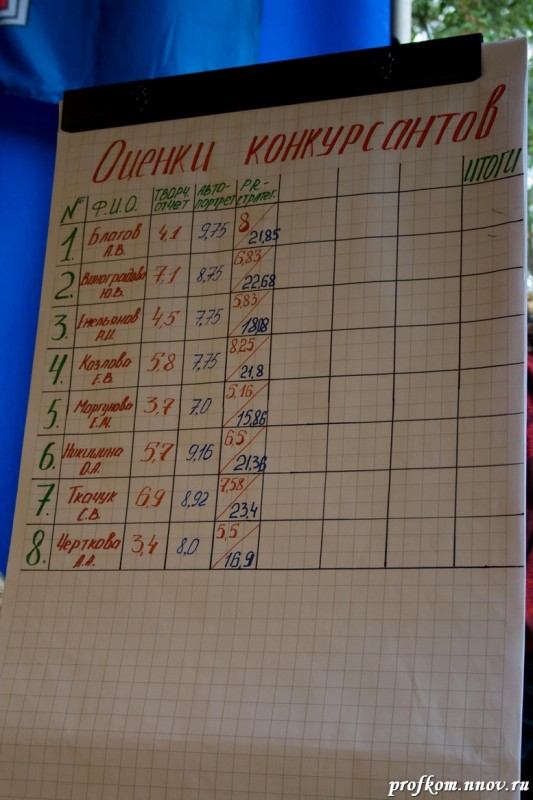 Оценки конкурсантов
№ Ф.И.О. ТВОРЧ. ОТЧЕТ АВТО-ПОРТРЕТ PR-СТРАТЕГ. ИТОГИ
1. Благов А.В. 4,1 9,75 8 21,85
2. Виноградова Ю.В. 7,1 8,75 6,83 22,68
3. Емельянов 4,5 7,75 5,83 18,08
4. Козлова Е.В. 5,8 7,75 8,25 21,8
5. Моргунова Е.М. 3,7 7,0 5,16 15,86
6. Никишина О.А. 5,7 9,16 6,5 21,36
7. Ткачук С.В. 6,9 8,92 7,58 23,4
8. Черткова А.А. 3,4 8,0 5,5 16,9
profkom.nnov.ru